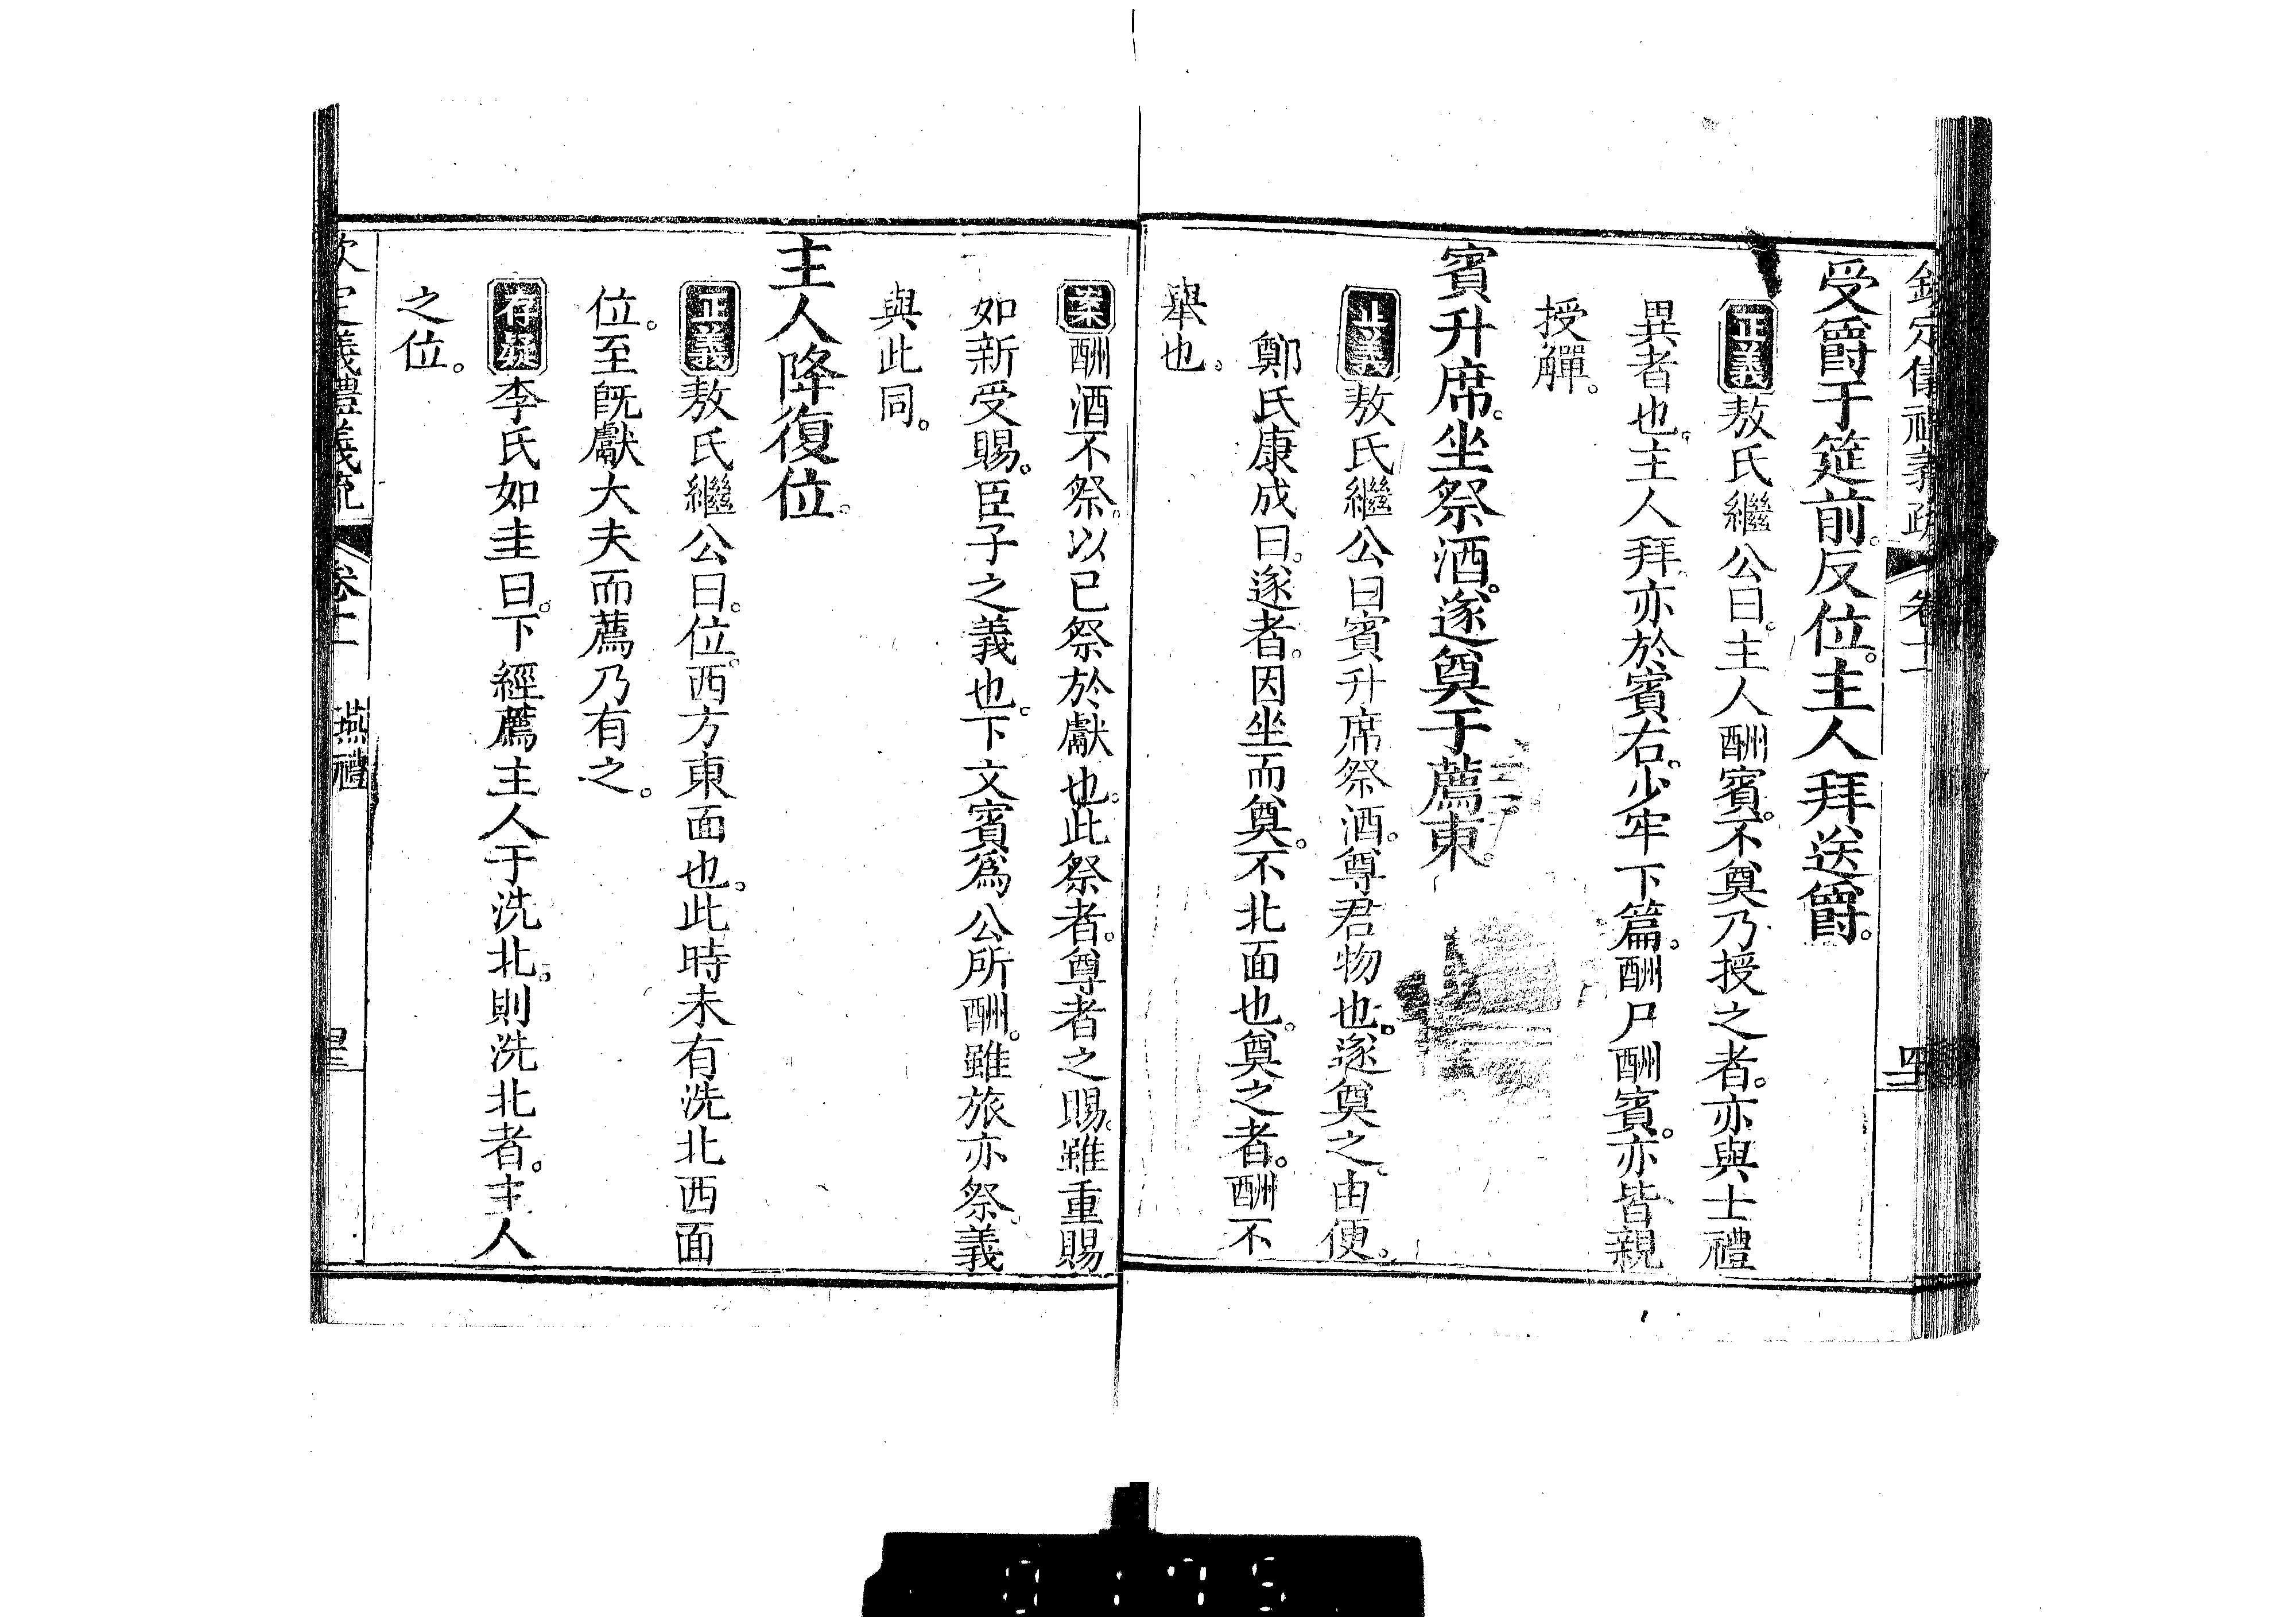 欽定儀禮義疏 卷十二 四二
受爵于筵前。反位。主人拜送爵。
正義敖氏繼公曰。主人酬賓。不奠乃授之者。亦與士禮
異者也。主人拜。亦於賓右。少牢下篇。酬尸酬賓。亦皆親
授觶。
賓升席。坐祭酒。遂奠于薦東。
正義敖氏繼公曰賓升席祭酒。尊君物也。遂奠之。由便。
鄭氏康成曰。遂者。因坐而奠。不北面也。奠之者。酬不
舉也。
案酬酒不祭。以已祭於獻也。此祭者。尊者之賜。雖重賜
如新受賜。臣子之義也。下文賓為公所酬。雖旅亦祭。義
與此同。
主人降復位。
正義敖氏繼公曰。位。西方東面也。此時未有洗北西面
位。至旣獻大夫而薦乃有之。
存疑李氏如圭曰。下經薦主人于洗北。則洗北者。主人
之位。
欽定儀禮義疏 卷十二 燕禮